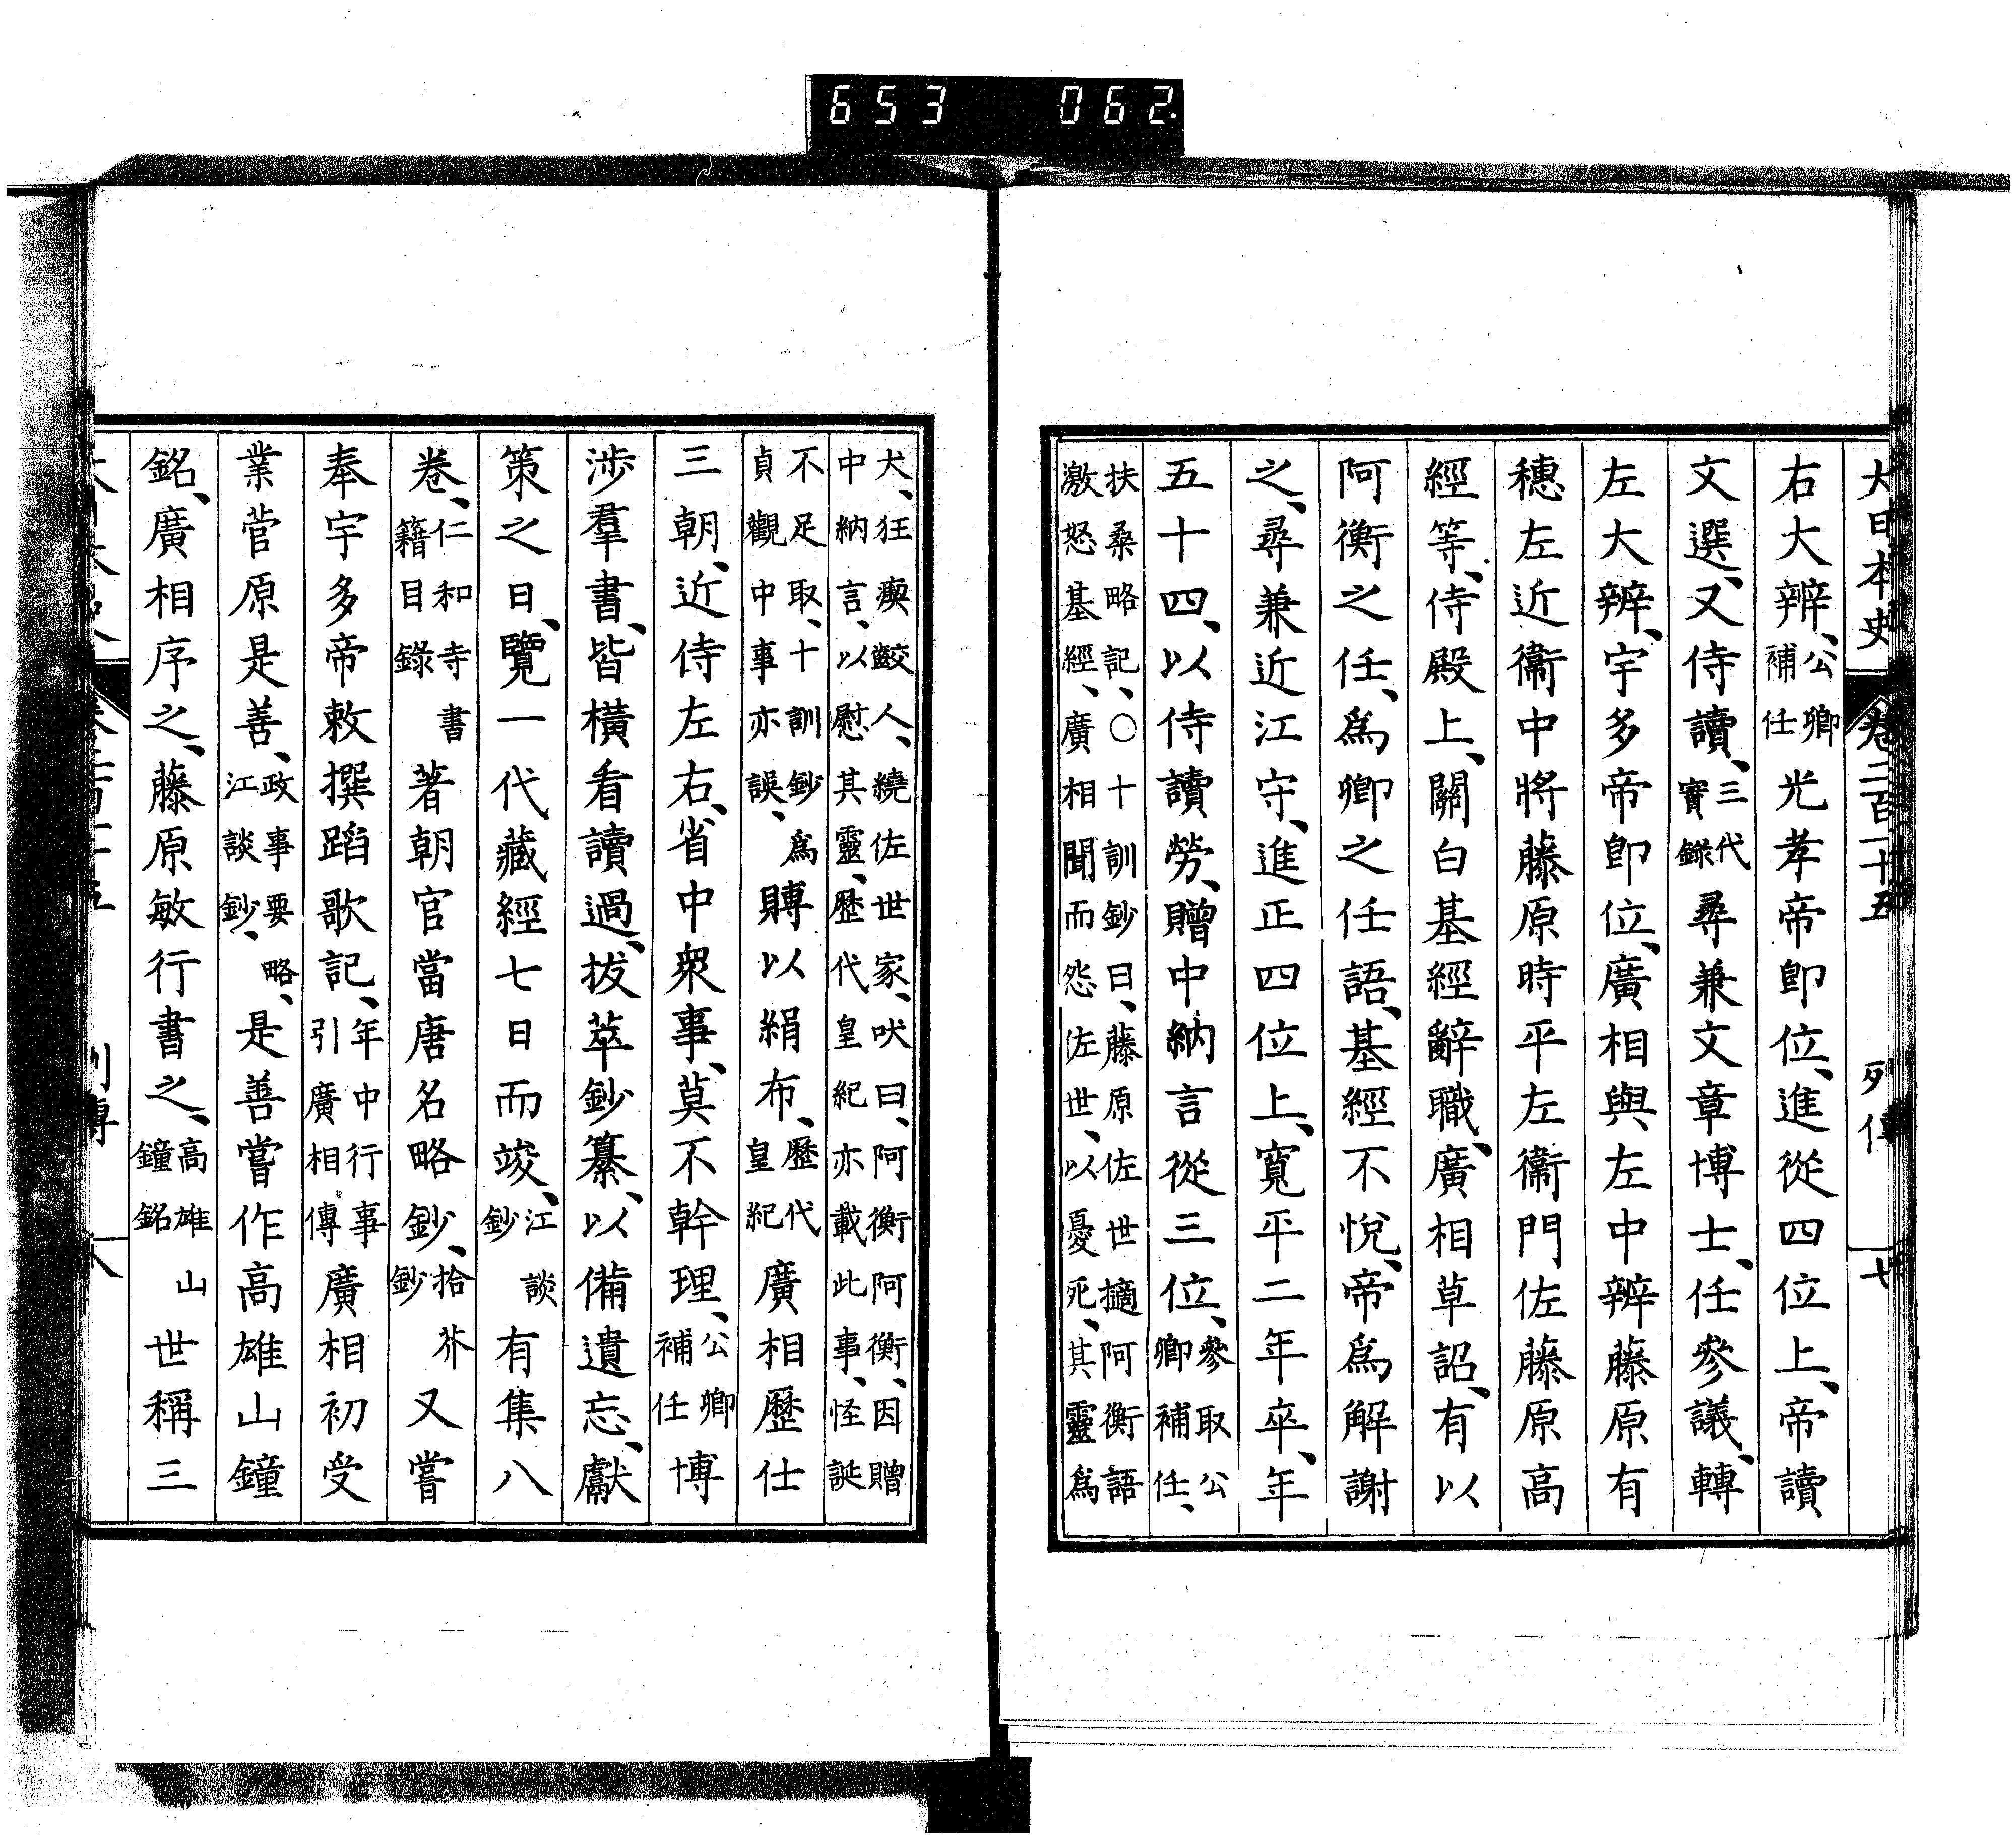 653 062
大日本史 卷二百一十五 列傳 七
右大辨、公卿補任光孝帝卽位、進從四位上、帝讀
文選、又侍讀、三代實錄尋兼文章博士、任參議、轉
左大辨、宇多帝卽位、廣相與左中辨藤原有
穗左近衞中將藤原時平左衞門佐藤原高
經等、侍殿上、關白基經辭職、廣相草詔、有以
阿衡之任、爲卿之任語、基經不悅、帝爲解謝
之、尋兼近江守、進正四位上、寬平二年卒、年
五十四、以侍讀勞、贈中納言從三位、參取公卿補任、
扶桑略記、○十訓鈔曰、藤原佐世摘阿衡語
激怒基經、廣相聞而怨佐世、以憂死、其靈爲
犬、狂瘈齩人、繞佐世家、吠曰、阿衡阿衡、因贈
中納言、以慰其靈、歷代皇紀亦載此事、怪誕
不足取、十訓鈔爲
貞觀中事亦誤、賻以絹布、歷代皇紀廣相歷仕
三朝、近侍左右、省中衆事、莫不幹理、公卿補任博
涉羣書、皆橫看讀過、拔萃鈔纂、以備遺忘、獻
策之日、覽一代藏經七日而竣、江談鈔有集八
卷、仁和寺書籍目錄著朝官當唐名略鈔、拾芥鈔又嘗
奉宇多帝敕撰蹈歌記、年中行事引廣相傳廣相初受
業菅原是善、政事要略、江談鈔、是善嘗作高雄山鐘
銘、廣相序之、藤原敏行書之、高雄山鐘銘世稱三